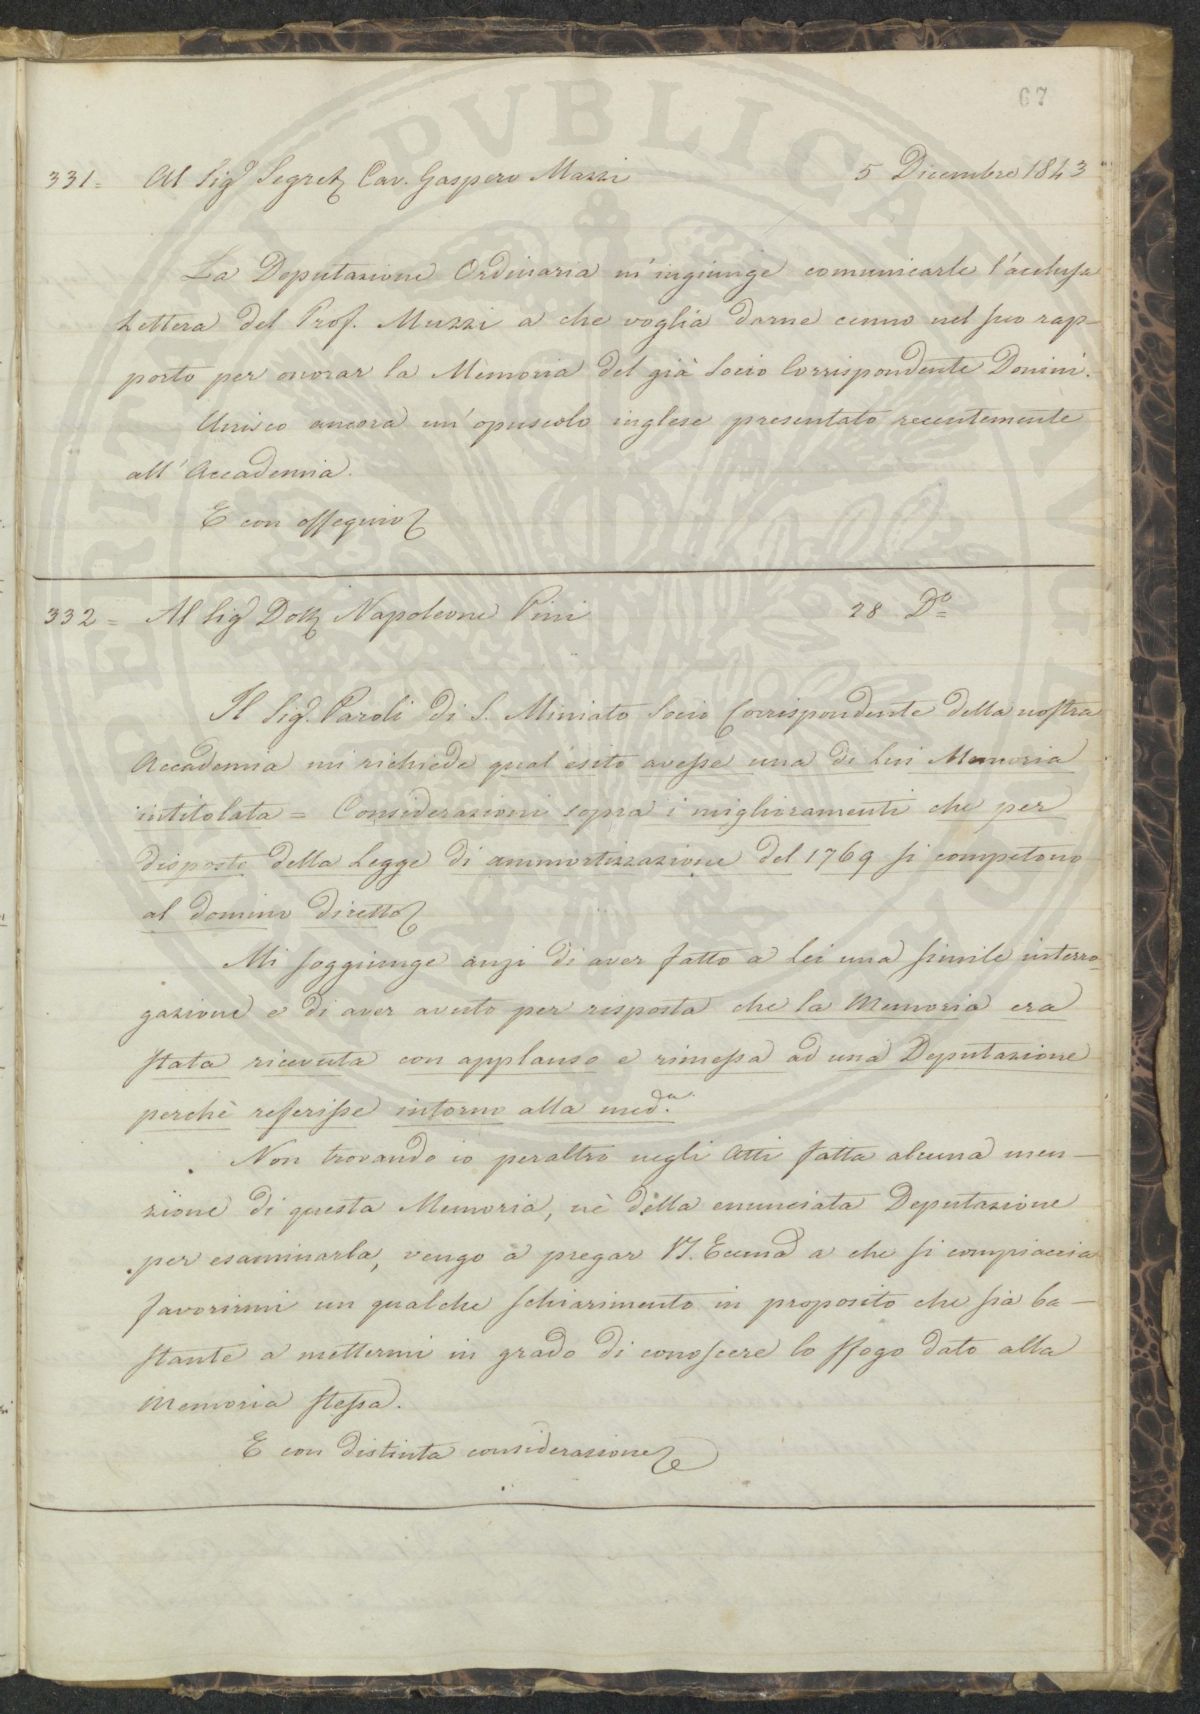 67
331= Al Sig.r Segret. Cav. Gaspero Mazzi 5 Dicembre 1843
La Deputazione Ordinaria m'ingiunge comunicarle l'acclusa
Lettera del Prof. Muzzi a che voglia darne cenno nel suo rap-
porto per onorar la Memoria del già Socio Corrispondente Donini.
Unisco ancora un'opuscolo inglese presentato recentemente
all'Accademia.
E con ossequio
332= Al Sig.r Dott. Napoleone Pini 28 D.o
Il Sig. Paroli di S. Miniato Socio Corrispondente della nostra
Accademia mi richiede qual'esito avesse una di Lui Memoria
intitolata = Considerazioni sopra i miglioramenti che per
disposto della Legge di ammortizzazione del 1769 si competono
al domino diretto
Mi soggiunge anzi di aver fatto a Lei una simile interro-
gazione e di aver avuto per risposta che la Memoria era
stata ricevuta con applauso e rimessa ad una Deputazione
perchè referisse intorno alla med.a
Non trovando io peraltro negli Atti fatta alcuna men-
zione di questa Memoria, nè della enunciata Deputazione
per esaminarla, vengo a pregar V.S. Eccma a che si compiaccia
favorirmi un qualche schiarimento in proposito che sia ba-
stante a mettermi in grado di conoscere lo sfogo dato alla
Memoria stessa.
E con distinta considerazione